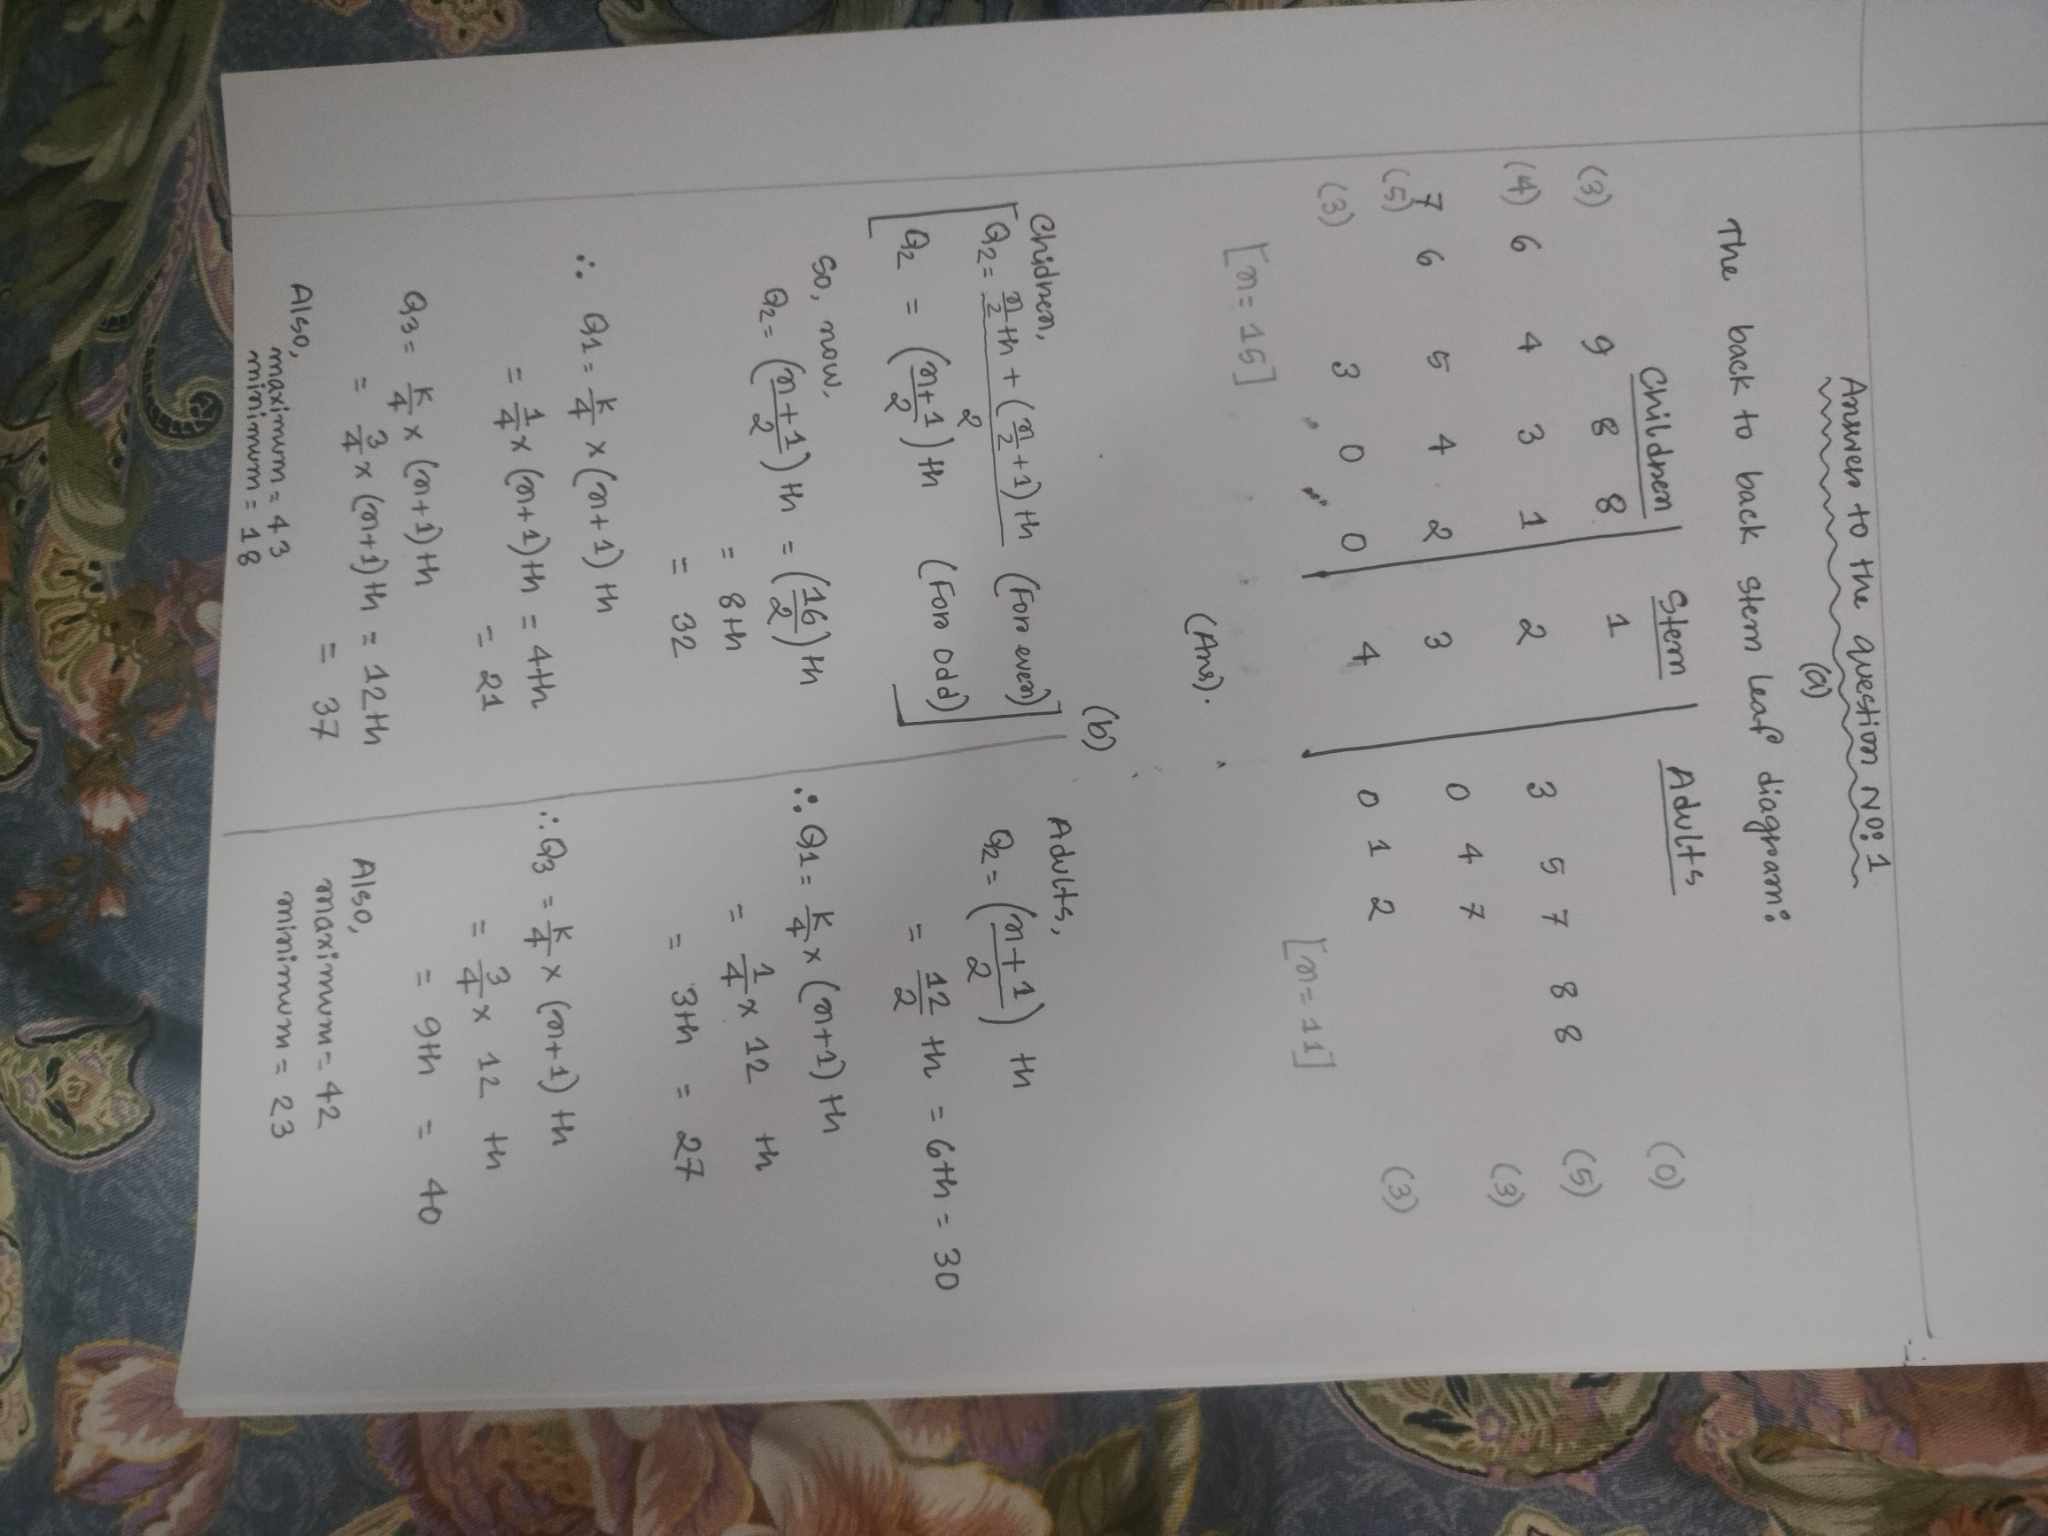 Answer to the question No: 1
(a)
The back to back stem leaf diagram:
Children Stem Adults
(3) 9 8 8 1 (0)
(4) 6 4 3 1 2 3 5 7 8 8 (5)
(5) 7 6 5 4 2 3 0 4 7 (3)
(3) 3 0 0 4 0 1 2 (3)
[n = 15] [n = 11]
(Ans).
(b)
Chidren,
[Q2 = (n/2 th + (n/2 + 1) th)/2 (For even)
Q2 = ((n+1)/2) th (For odd)]
So, now,
Q2 = ((n+1)/2) th = (16/2) th
= 8th
= 32
∴ Q1 = k/4 × (n+1) th
= 1/4 × (n+1) th = 4th
= 21
Q3 = k/4 × (n+1) th
= 3/4 × (n+1) th = 12th
= 37
Also,
maximum = 43
minimum = 18
Adults,
Q2 = ((n+1)/2) th
= 12/2 th = 6th = 30
∴ Q1 = k/4 × (n+1) th
= 1/4 × 12 th
= 3th = 27
∴ Q3 = k/4 × (n+1) th
= 3/4 × 12 th
= 9th = 40
Also,
maximum = 42
minimum = 23